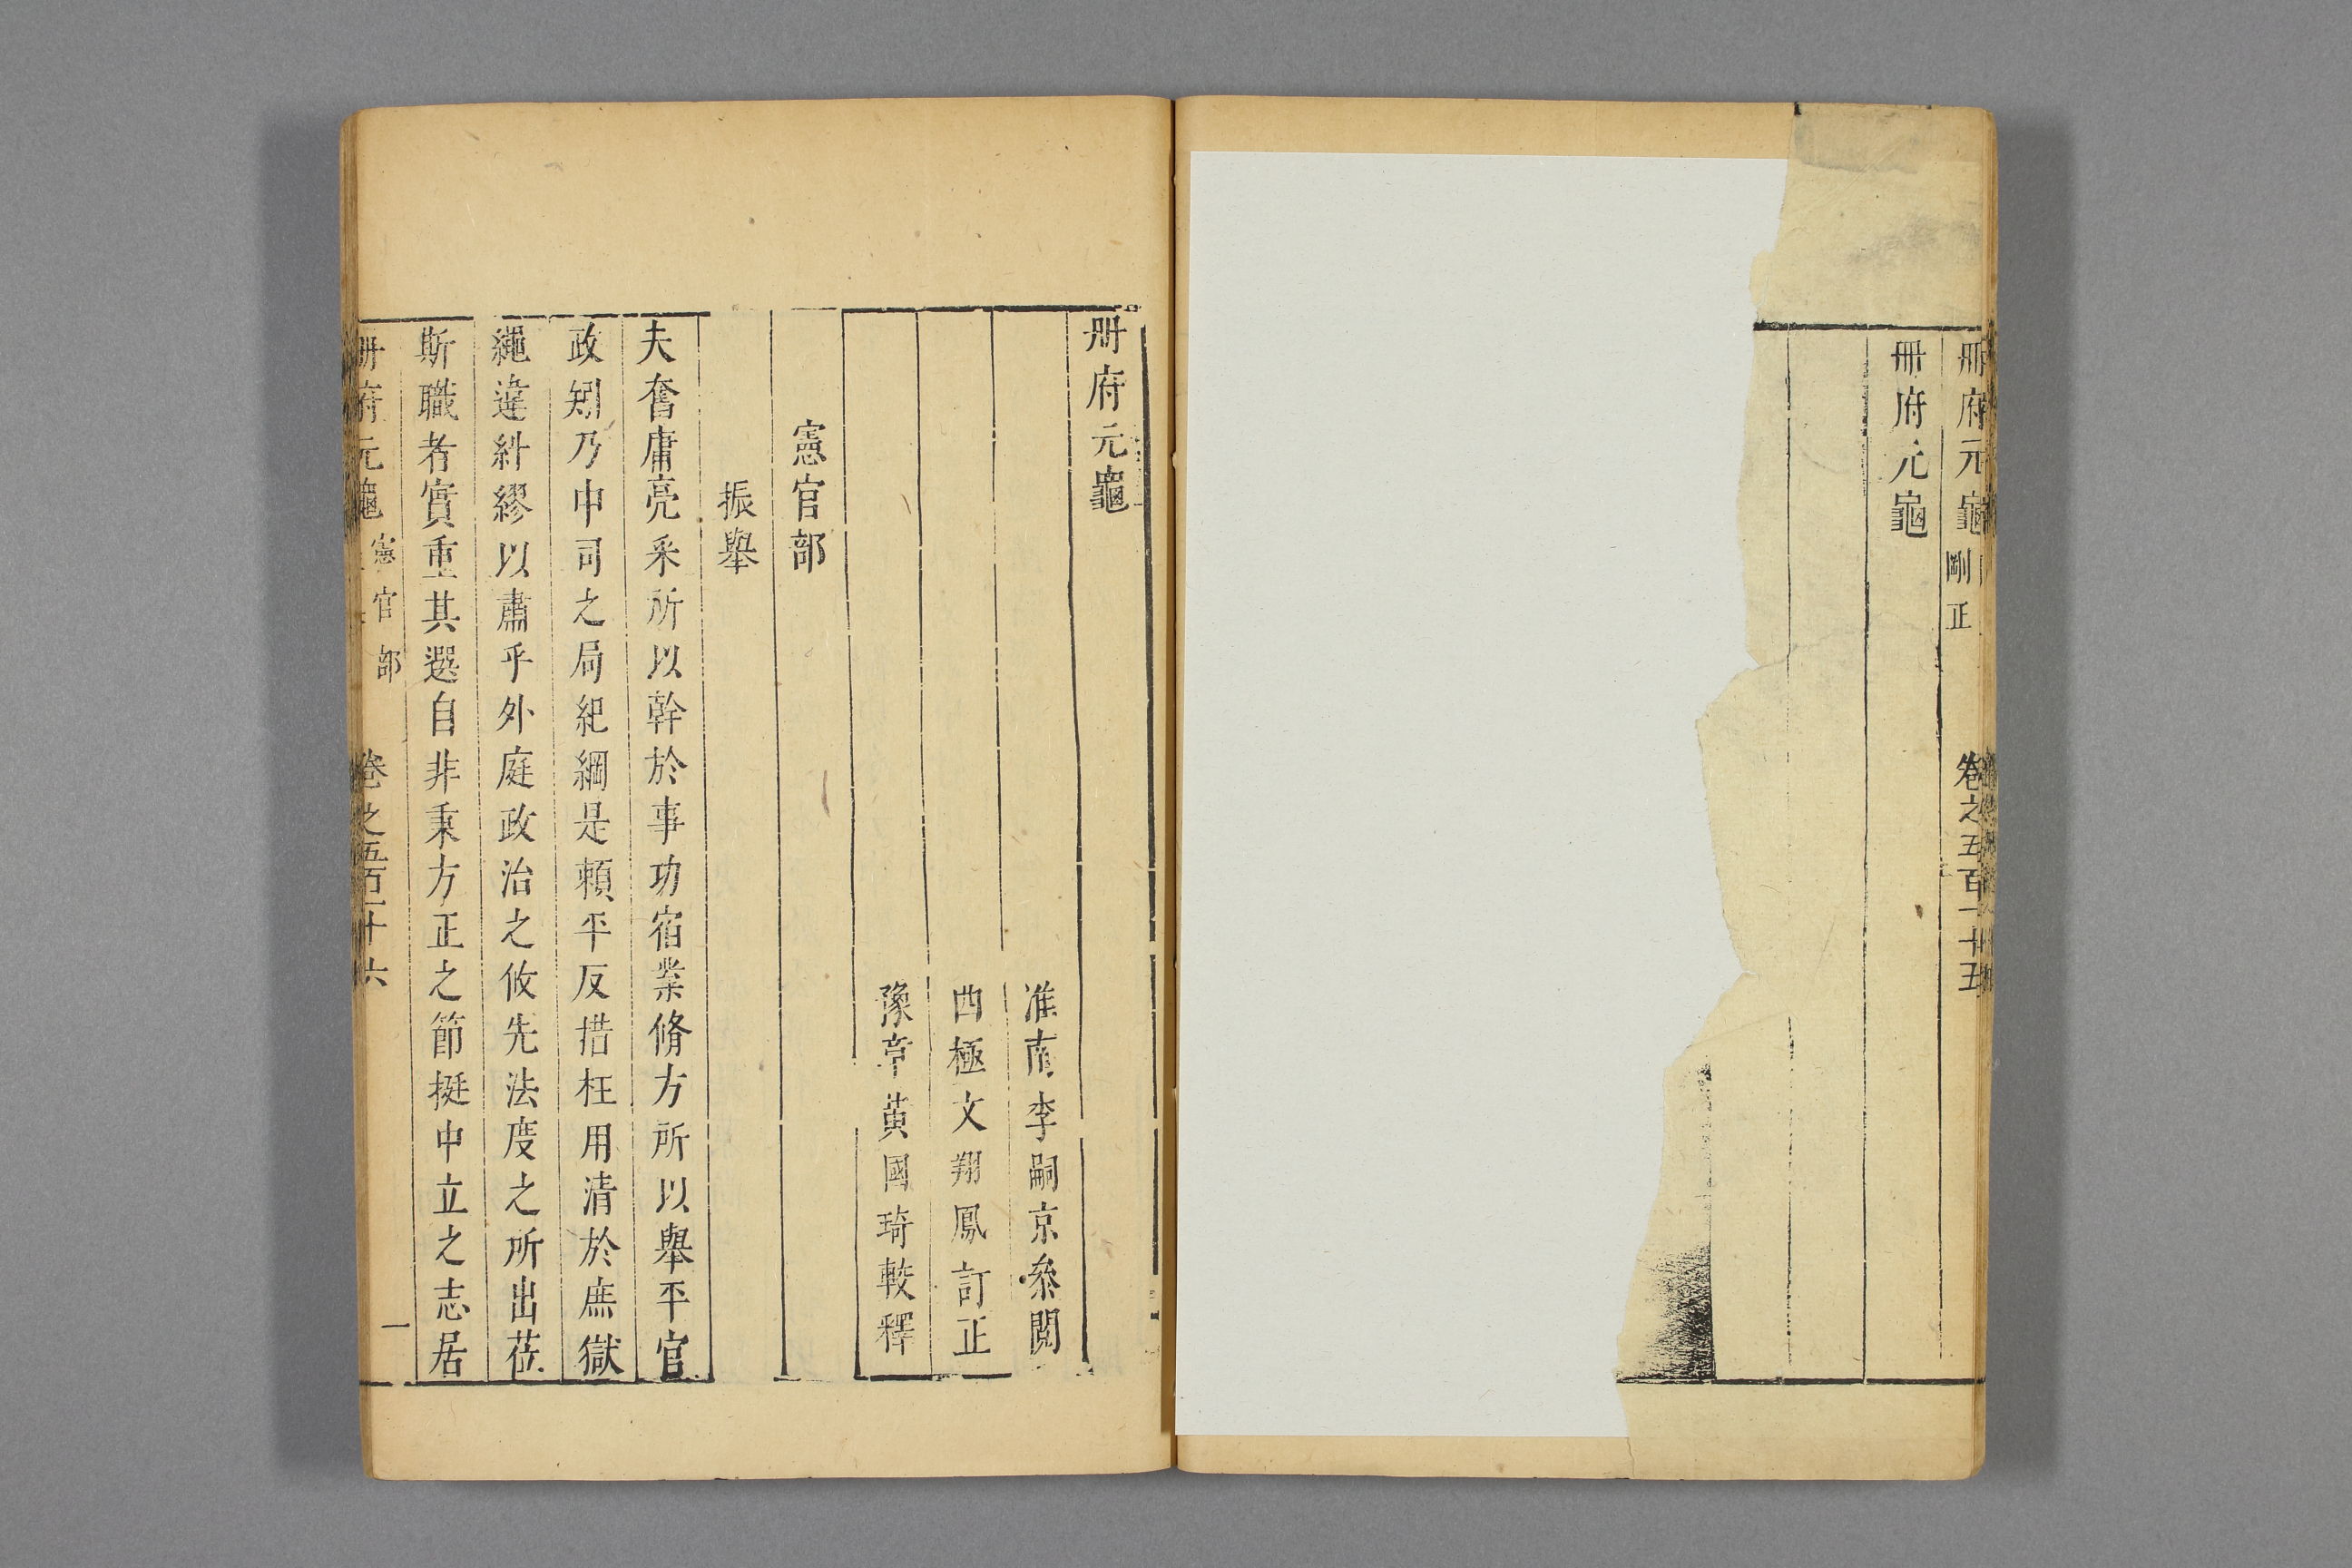 冊府元龜 剛正 卷之五百一十五
冊府元龜
冊府元龜
淮南李嗣京叅閱
西極文翔鳳訂正
豫章黃國琦較釋
憲官部
振舉
夫奮庸亮采所以幹於事功宿業脩方所以舉平官
政矧乃中司之局紀綱是賴平反措枉用清於庶獄
繩違糾繆以肅乎外庭政治之攸先法度之所出莅
斯職者實重其選自非秉方正之節挺中立之志居
冊府元龜 憲官部 卷之五百一十六 一